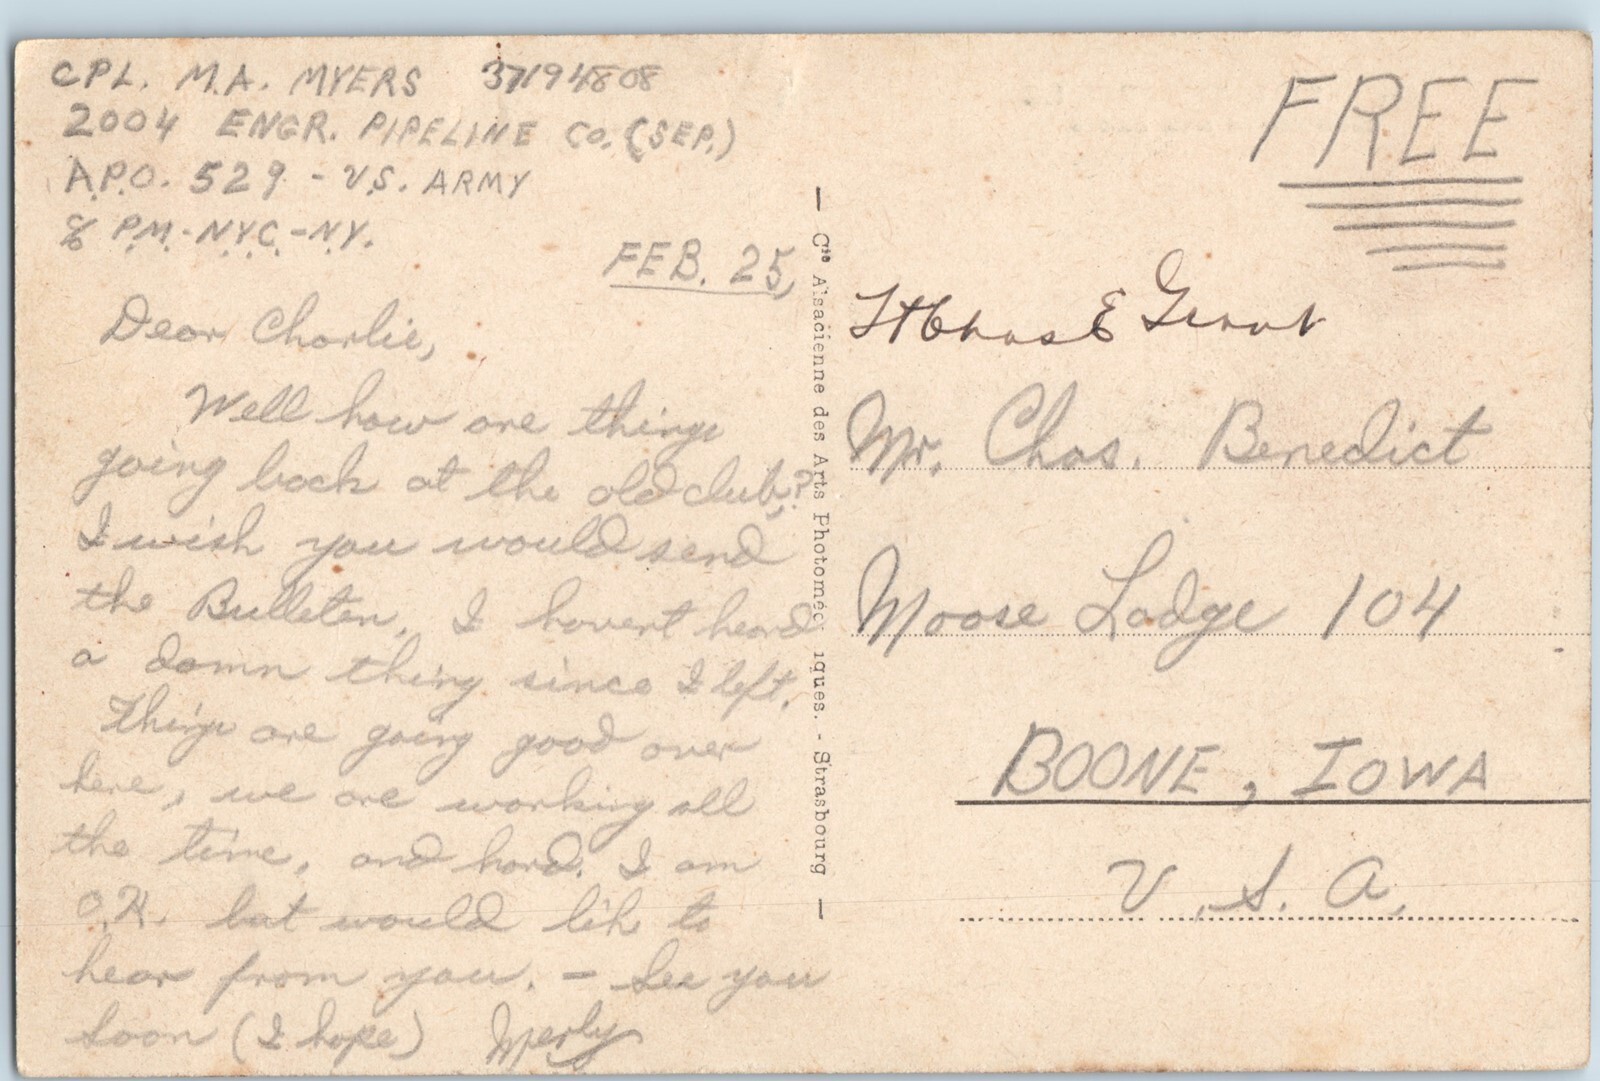 CPL. M.A. MYERS 37194808
2004 ENGR. PIPELINE CO. (SEP.)
A.P.O. 529 - U.S. ARMY
c/o P.M.-N.Y.C.-N.Y.
FEB. 25,
Dear Charlie,
Well how are things
going back at the old club,?
I wish you would send
the Bulleten. I havent heard
a damn thing since I left.
Things are going good over
here, we are working all
the time, and hard. I am
O.K. but would like to
hear from you. - See you
soon (I hope)
FREE
Lt Chas E
Mr. Chas. Benedict
Moose Lodge 104
BOONE, IOWA
U.S.A.
— Cie Alsacienne des Arts Photomécaniques. - Strasbourg —